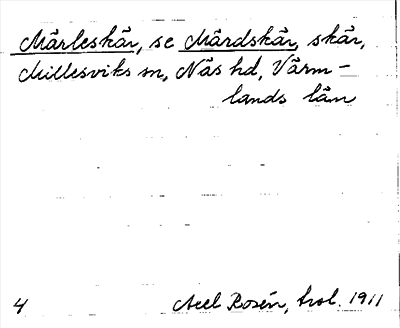 Märleskär, se Mårdskär, skär,
Millesviks sn, Näs hd, Värm-
lands län
4 Axel Rosén, trol. 1911